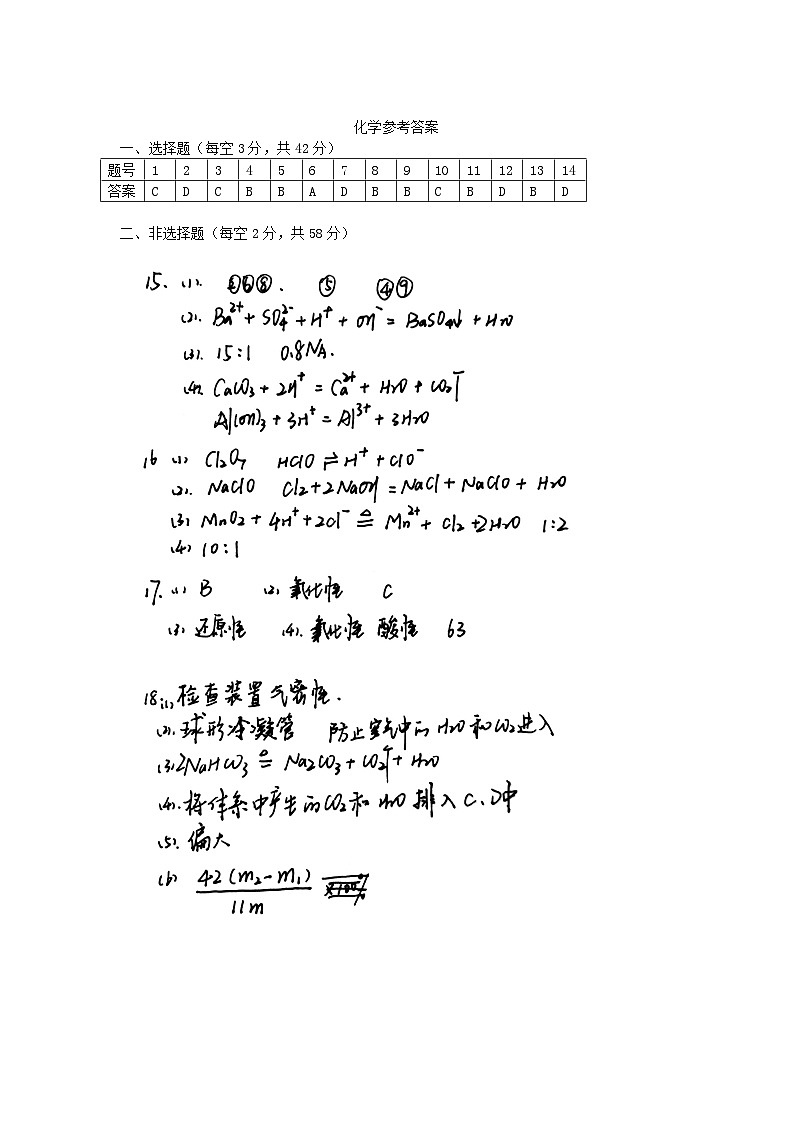 化学参考答案
一、选择题（每空3分，共42分）
题号 1 2 3 4 5 6 7 8 9 10 11 12 13 14
答案 C D C B B A D B B C B D B D
二、非选择题（每空2分，共58分）
15. (1). ⑥⑧. ⑤ ④⑨
(2). Ba²⁺ + SO₄²⁻ + H⁺ + OH⁻ = BaSO₄↓ + H₂O
(3). 15:1 0.8NA.
(4). CaCO₃ + 2H⁺ = Ca²⁺ + H₂O + CO₂↑
Al(OH)₃ + 3H⁺ = Al³⁺ + 3H₂O
16 (1) Cl₂O₇ HClO ⇌ H⁺ + ClO⁻
(2). NaClO Cl₂ + 2NaOH = NaCl + NaClO + H₂O
(3) MnO₂ + 4H⁺ + 2Cl⁻ ≜ Mn²⁺ + Cl₂ + 2H₂O 1:2
(4) 10:1
17. (1) B (2) 氧化性 C
(3) 还原性 (4). 氧化性 酸性 63
18 (1) 检查装置气密性.
(2). 球形冷凝管 防止空气中的H₂O和CO₂进入
(3) 2NaHCO₃ ≜ Na₂CO₃ + CO₂↑ + H₂O
(4). 将体系中产生的CO₂和H₂O排入C、D中
(5). 偏大
(6) 42(m₂-m₁)
11m